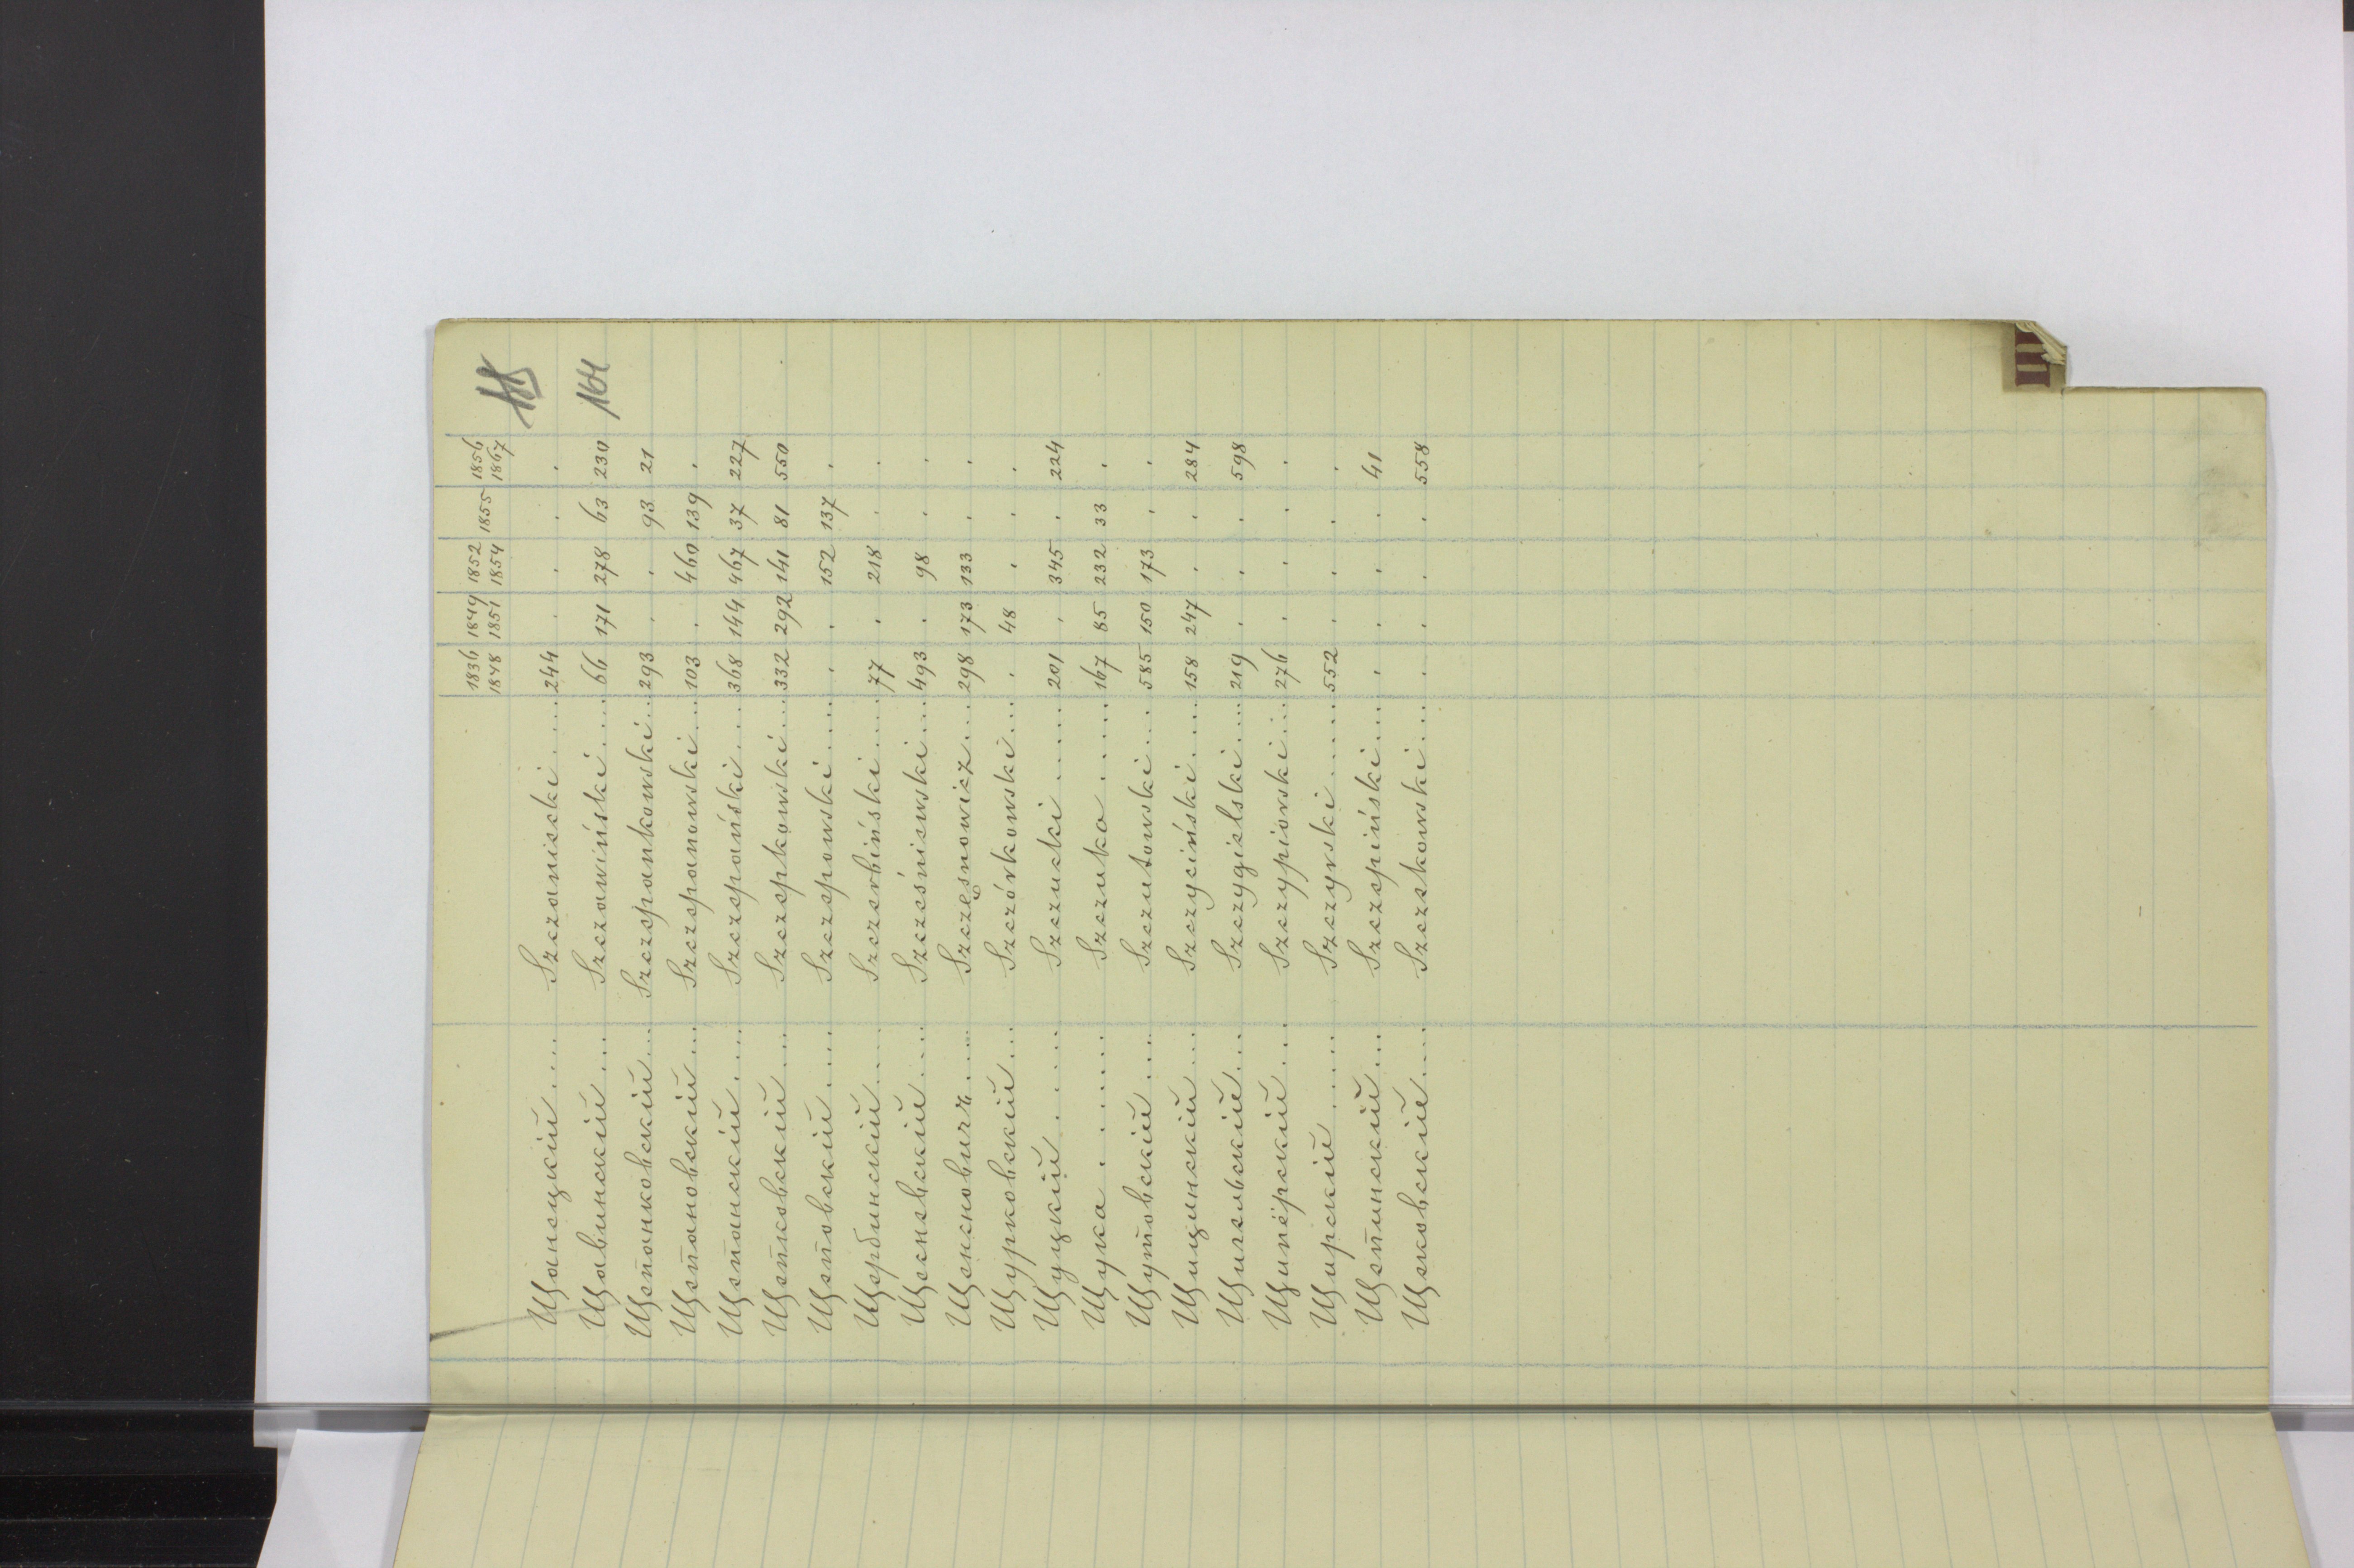 1836 1849 1852 1855 1856
1848 1851 1854 1867
164
Щанецкій..... Szczaniecki..... 244 . . . .
Щавинскій.... Szczawiński.... 66 171 278 63 230
Щепанковскій... Szczepankowski... 293 . . 93 21
Щепановскій... Szczepanowski.... 103 . 460 139 .
Щепанскій.... Szczepański.... 368 144 467 37 227
Щепковскій.... Szczepkowski.... 332 292 141 81 550
Щеповскій.... Szczepowski.... . . 152 137 .
Щербинскій.... Szczerbiński.... 77 . 218 . .
Щесневскій.... Szcześniewski.... 493 . 98 . .
Щенсновичъ..... Szczęsnowicz.... 298 173 133 . .
Щурковскій... Szczórkowski... . 48 . . .
Щуцкій..... Szczucki...... 201 . 345 . 224
Щука....... Szczuka...... 167 85 232 33 .
Щутовскій.... Szczutowski.... 585 150 173 . .
Щицинскій.... Szczyciński.... 158 247 . . 284
Щигельскій... Szczygielski.... 219 . . . 598
Щипёрскій... Szczypiorski... 276 . . . .
Щирскій..... Szczyrski..... 552 . . . .
Щепинскій... Szczepiński.... . . . . 41
Щековскій.... Szczekowski.... . . . . 558